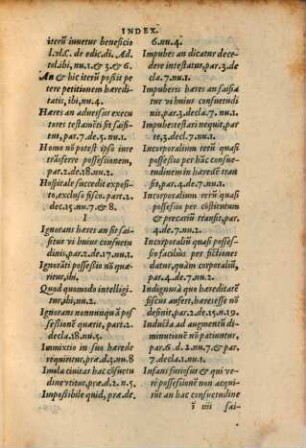 INDEX.
iterũ iuuetur beneficio
l.vlt.C. de edic.di. Ad.
tol.abi, nu.1.& 3.& 6.
An & hic iterũ possit pe
tere petitionem hæredi
tatis, ibi, nu.4.
Hæres an aduersus execu
tores testamẽti sit saisi
tus, par.7.de.3.nu.1.
Homo nõ potest ipso iure
trãsferre possessionem,
par.2.de.18.nu.2.
Hospitale succedit exposi-
to, excluso fisco. par.2.
dec.13.nu.7.& 8.
I
Ignorans hæres an sit sai-
situr vi huius cõsuetu
dinis, par.2.de.17.nu.1.
Ignorãti possessio nõ quæ-
ritur, ibi.
Quod quomodo intelligi
tur, ibi, nu.2.
Ignorans nonnunquã pos
sessionẽ quærit, part.2.
dec.18.nu.2.
Immixtio in suo hærede
requiritur, præ d.3.nu.8
Imula ciuitas hac cõsuetu
dine vtitur, præd.2.n.5.
Impossibile quid, præ de.
6.nu.4.
Impubes an dicatur dece
dere intestatur, par.3.de
cla.7.nu.1.
Impuberis hæres an saisia
tur vi huius consuetudi
nis, par.3.decla.7.nu.1.
Impubes testari nequit, par
te,3.decl.7.nu.1.
Incorporalium rerũ quasi
possessio per hãc consue
tudinem in hæredẽ tran
sit, par.4.de.7.nu.1.
Incorporaliũ rerũ quasi
possessio per cõstitutum
& precariũ transit, par.
4.de.7.nu.2.
Incorporaliũ quasi posses
sio facilius per fictiones
datur, quàm corporaliũ,
par.4.de.7.nu.2.
Indignũ à quo hæreditatẽ
fiscus aufert, hæres esse nõ
desinit, par.2.de.15.n.19.
Inducta ad augmentũ di-
minutionẽ nõ patiuntur,
par.6.d.2.nu.7.& par.
7.decla.1.nu.1.
Infans furiosus & qui ve-
rè possessionẽ non acqui
rit an hac consuetudine
ĩ iiij sai-